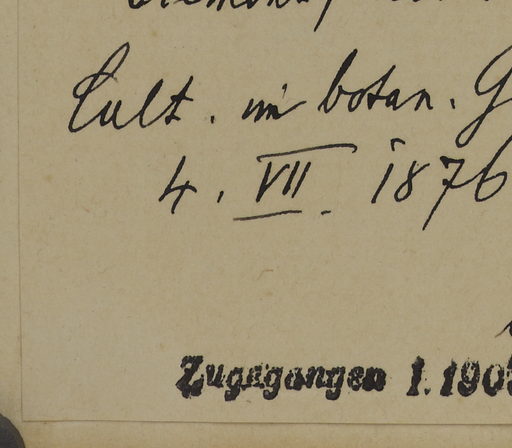 Cult. im botan. G
4. VII. 1876
Zugegangen 1.190